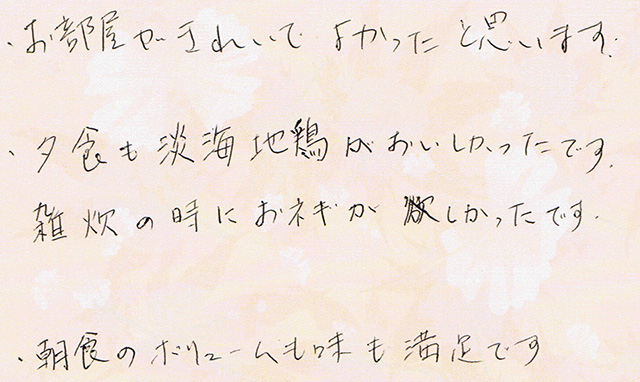 ・お部屋がきれいでよかったと思います.
・夕食も淡海地鶏がおいしかったです.
雑炊の時におネギが欲しかったです.
・朝食のボリュームも味も満足です